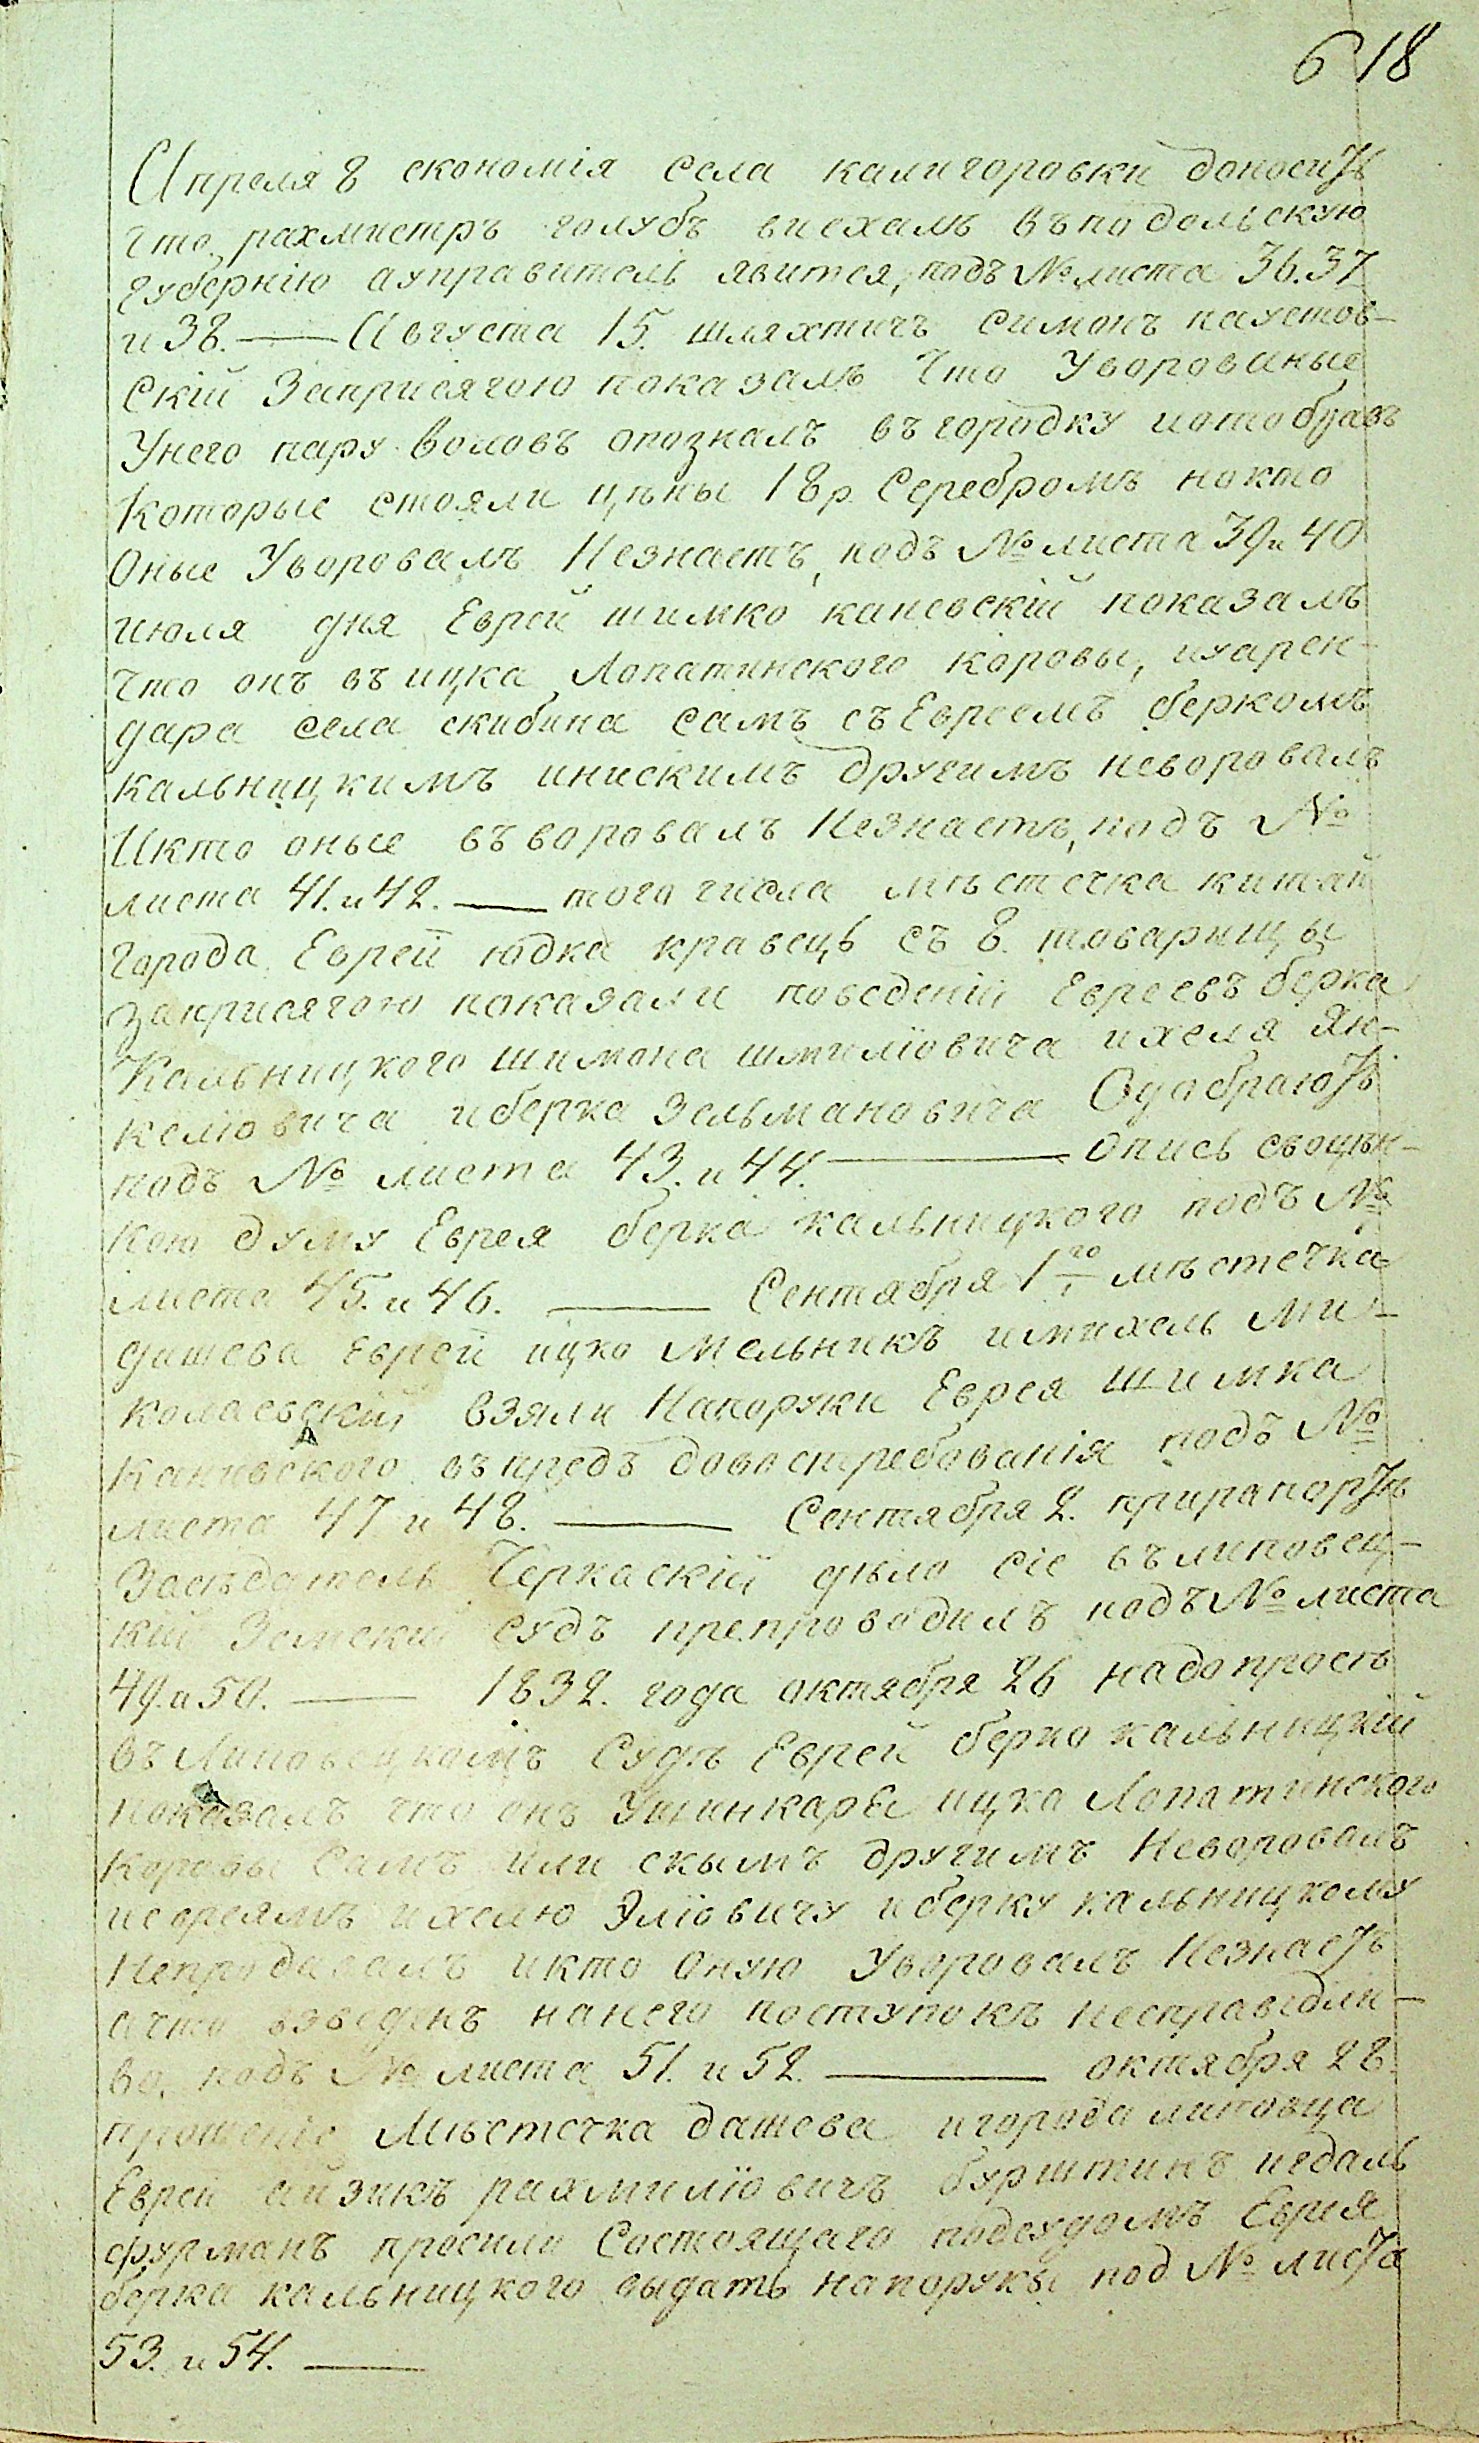 6 18
Апреля 8 економія села калигоровки доноситъ
что рахмистръ голубъ виехалъ въ подольскую
губернію а управитель явится, подъ № листа 36. 37
и 38. — Августа 15. шляхтичъ симонъ паустов-
скій заприсягою показалъ что уворованые
Унего пару воловъ опозналъ въ городку иотобралъ
которые стояли цѣны 18 р. Серебромъ нокто
Оные Уворовалъ Незнаетъ, подъ № листа 39 и 40
июля дня Еврей шимко каневскій показалъ
что онъ въ ицка Лопатинского коровы, иуарен-
дара села скибина самъ съ Евреемъ беркомъ
кальницкимъ инискимъ другимъ неворовалъ
Икто оные въворовалъ Незнаетъ, подъ №
листа 41. и 42. — того числа мѣстечка китай
города Еврей юдка кравецъ съ 8. товарищы
заприсягою показали поведеній Евреевъ берка
Кальницкого шимона шмиліовича ихеля Ян-
келіовича иберка Зельмановича Одобраютъ
подъ № листа 43. и 44. — Опись соцѣн-
кою думу Еврея берка кальницкого подъ №
листа 45. и 46. — Сентября 1го мѣстечка
дашева Еврей ицко Мельникъ имихель Ми-
колаевскій взяли Напоруки Еврея шимка
Каневского въпредъ довостребованія подъ №
листа 47 и 48. — Сентября 2. прирапортѣ
Засѣдатель Черкаскій дѣло сіе въ липовец-
кій Земский судъ препроводилъ подъ № листа
49. и 50. — 1832. года октября 26 надопросѣ
въ Липовецкомъ Судѣ Еврей берко кальницкій
показалъ что онъ Ушинкаря ицка Лопатинского
коровы Самъ или скымъ другимъ Неворовалъ
иевреямъ ихелю Эліовичу иберку кальницкому
Непродавалъ икто Оную Уворовалъ Незнаетъ
ачто взведенъ нанего поступокъ несправедли-
во, подъ № листа 51. и 52. — октября 28.
прошеніе Мѣстечка дашева игорода липовца
Еврей айзикъ рахмиліовичъ бурштинъ ицдаль
фурманъ просили Состоящаго подсудомъ Еврея
берка кальницкого выдать напоруки под № листа
53. и 54. —